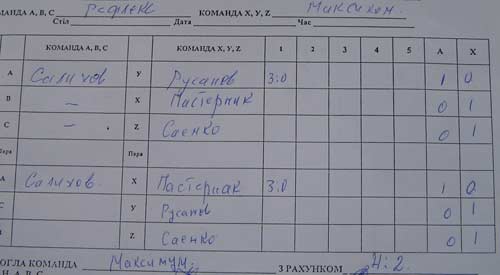 МАНДА А, В, С Рефлекс КОМАНДА Х, У, Z Максимум
Стіл Дата Час
КОМАНДА А, В, С КОМАНДА Х, У, Z 1 2 3 4 5 А Х
А Салихов У Русанов 3:0 1 0
В – Х Пастернак 0 1
С – Z Саенко 0 1
Пара Пара
А Салихов Х Пастернак 3:0 1 0
С У Русанов 0 1
В Z Саенко 0 1
ОГЛА КОМАНДА Максимум З РАХУНКОМ 4:2